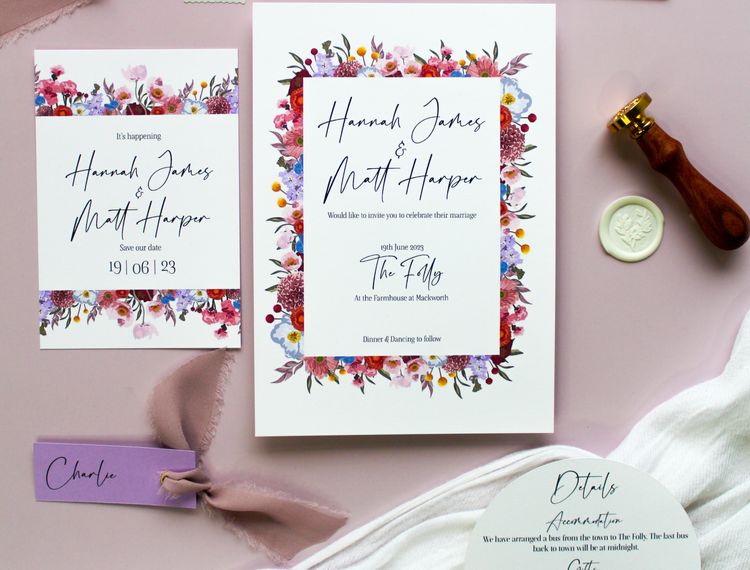 It's happening
Hannah James
&
Matt Harper
Save our date
19 | 06 | 23
Hannah James
&
Matt Harper
Would like to invite you to celebrate their marriage
19th June 2023
The Folly
At the Farmhouse at Mackworth
Dinner & Dancing to follow
Charlie
Details
Accommodation
We have arranged a bus from the town to The Folly. The last bus
back to town will be at midnight.
Gifts